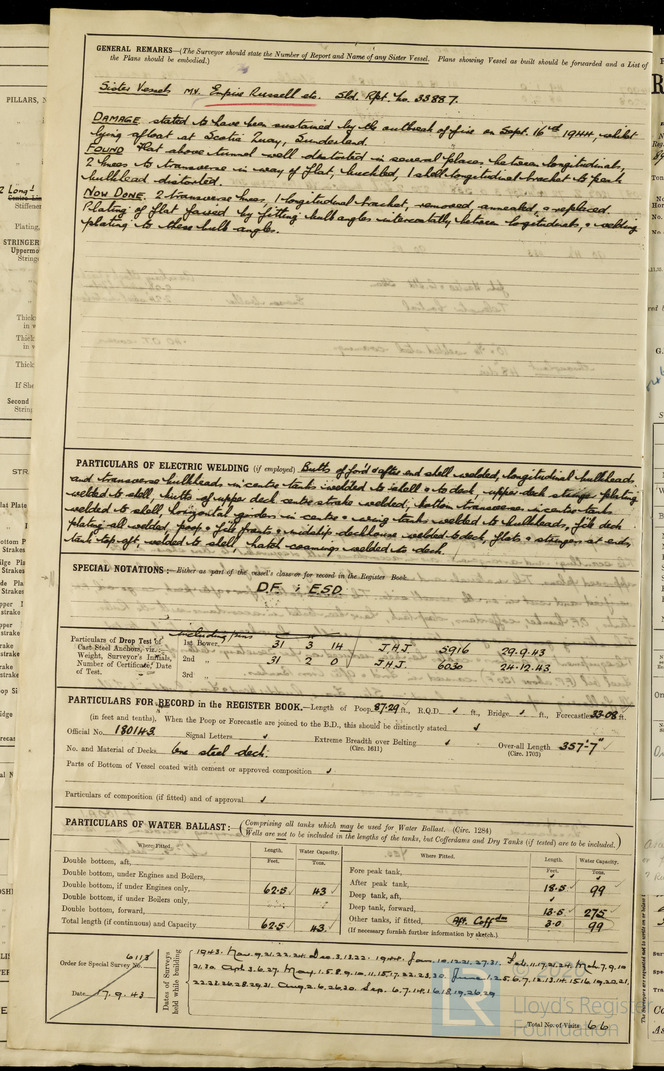 GENERAL REMARKS—(The Surveyor should state the Number of Report and Name of any Sister Vessel. Plans showing Vessel as built should be forwarded and a List of
the Plans should be embodied.)
Sister Vessels MV. Empire Russell etc. Sld. Rpt. No. 33887.
DAMAGE stated to have been sustained by the outbreak of fire on Sept. 16th 1944, whilst
lying afloat at Scotia Quay, Sunderland.
FOUND Flat above tunnel well distorted in several places between longitudinals,
2 knees to transverse in way of flat, buckled, 1 shell longitudinal bracket to peak
bulkhead distorted.
NOW DONE. 2 transverse knees, 1 longitudinal bracket, removed annealed, & replaced.
Plating of flat faired by fitting bulb angles intercostally between longitudinals, & welding
plating to these bulb angles.
PARTICULARS OF ELECTRIC WELDING (if employed) Butts of for'd & after end shell welded, longitudinal bulkheads
and transverse bulkheads in centre tanks welded to shell & to deck, upper deck stringer plating
welded to shell, butts of upper deck centre strake welded, bottom transverses in centre tanks
welded to shell, horizontal girders in centre & wing tanks welded to bulkheads, f'cle deck
plating all welded, poop & f'cle fronts & midship deckhouse welded to deck, flats & stringers at ends,
tank top aft, welded to shell, hatch coamings welded to deck.
SPECIAL NOTATIONS:— Either as part of the vessel's class or for record in the Register Book.
DF. ESD
including pins
Particulars of Drop Test of
Cast Steel Anchors, viz.:—
Weight, Surveyor's Initials,
Number of Certificate, Date
of Test.
1st Bower. 31 3 14 J.H.J. 5916 29.9.43
2nd „ 31 2 0 J.H.J. 6030 24.12.43
3rd „
PARTICULARS FOR RECORD in the REGISTER BOOK.—Length of Poop 87.29 ft., R.Q.D. ✓ ft., Bridge ✓ ft., Forecastle 33.08 ft.
(in feet and tenths). When the Poop or Forecastle are joined to the B.D., this should be distinctly stated ✓
Official No. 180143. Signal Letters ✓ Extreme Breadth over Belting ✓ Over-all Length 357'-7"
(Circ. 1611) (Circ. 1703)
No. and Material of Decks One steel deck.
Parts of Bottom of Vessel coated with cement or approved composition ✓
Particulars of composition (if fitted) and of approval ✓
PARTICULARS OF WATER BALLAST:— (Comprising all tanks which may be used for Water Ballast. (Circ. 1284)
Wells are not to be included in the lengths of the tanks, but Cofferdams and Dry Tanks (if tested) are to be included.)
Where Fitted. Length. Water Capacity. Where Fitted. Length. Water Capacity.
Feet. Tons. Feet. Tons.
Double bottom, aft,
Double bottom, under Engines and Boilers,
Double bottom, if under Engines only, 62.5 ✓ 43 ✓
Double bottom, if under Boilers only,
Double bottom, forward,
Total length (if continuous) and Capacity 62.5 43.
Fore peak tank, ✓ ✓
After peak tank, 18.5 ✓ 99
Deep tank, aft, ✓
Deep tank, forward, 13.5 ✓ 275
Other tanks, if fitted, (Aft. Coffdm 3.0 ✓ 99
(If necessary furnish further information by sketch.)
Order for Special Survey No. 6113
Date 17.9.43
Dates of Surveys
held while building
1943. Nov. 9.21.22.24. Dec. 3.13.22. 1944. Jan. 10.12.21.27.31. Feb. 11.17.21.24. Mch. 7.9.10
Total No. of Visits 66
© 2020
LR
Lloyd's Register
Foundation